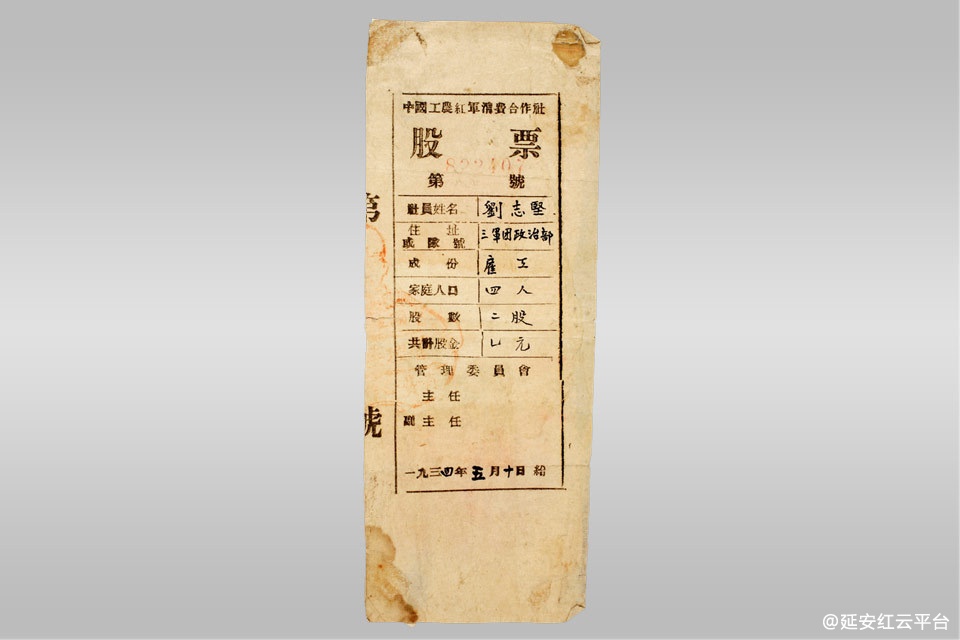 中國工農紅軍消費合作社
股 票
822407
第 號
社員姓名 劉志堅
住址或隊號 三軍团政治部
成份 雇工
家庭人口 四人
股數 二股
共計股金 元
管理委員會
主任
副主任
一九三四年五月十日給
第
號
@延安红云平台